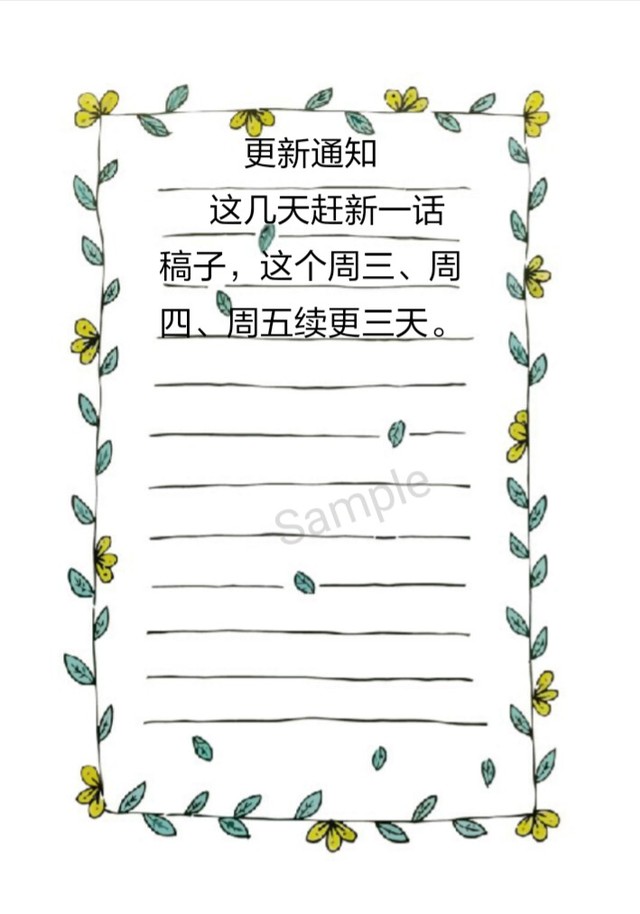 更新通知
这几天赶新一话
稿子，这个周三、周
四、周五续更三天。
Sample